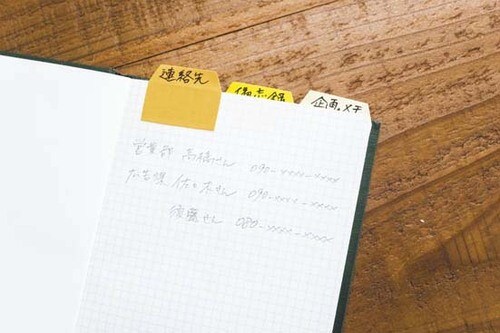 連絡先
備忘録
企画・メモ
営業部 高橋さん 090-xxxx-xxxx
佐々木さん 090-xxxx-xxxx
須藤さん 080-xxxx-xxxx